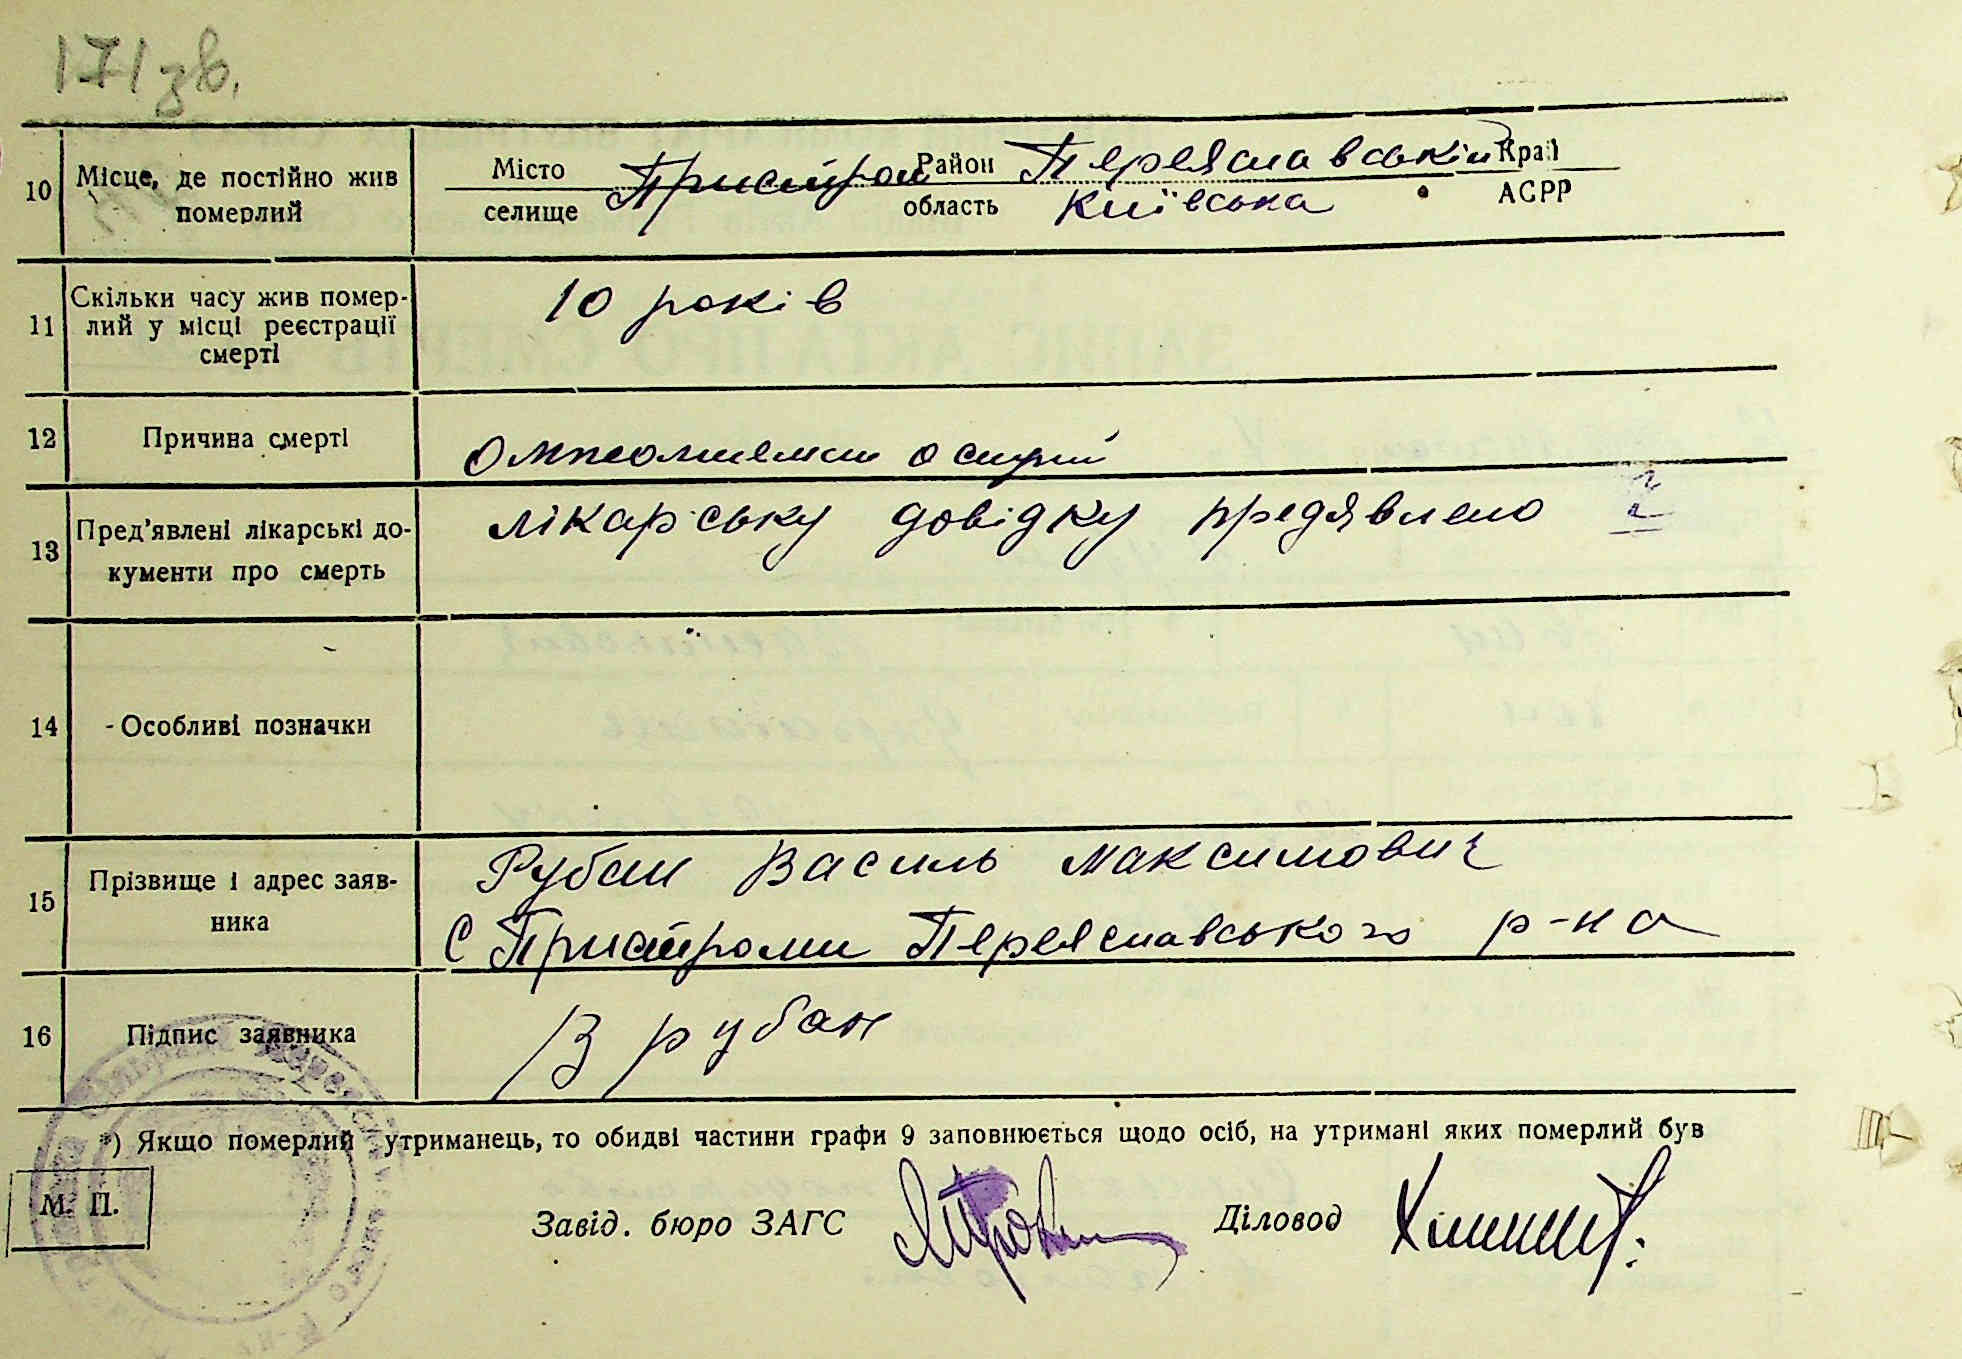 171 зв.
10 Місце, де постійно жив померлий
Місто селище Пристром Район Переяславський Край
область Київська АСРР
11 Скільки часу жив помер-
лий у місці реєстрації
смерті
10 років
12 Причина смерті
13 Пред’явлені лікарські до-
кументи про смерть
лікарську довідку предявлено
14 - Особливі позначки
15 Прізвище і адрес заяв-
ника
Рубан Василь Максимович
С Пристроми Переяславського р-на
16 Підпис заявника
В рубан
*) Якщо померлий утриманець, то обидві частини графи 9 заповнюється щодо осіб, на утримані яких померлий був
М. П.
Завід. бюро ЗАГС
Діловод